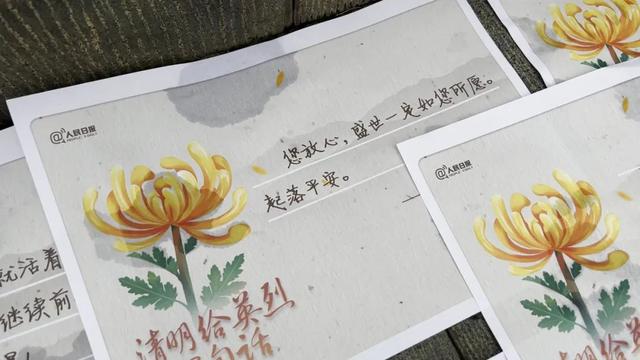 人民日报
PEOPLE'S DAILY
您放心，盛世一定如您所愿。
起落平安。
清明给英烈
句话
人民日报
PEOPLE'S DAILY
清明给英烈
就活着
继续前